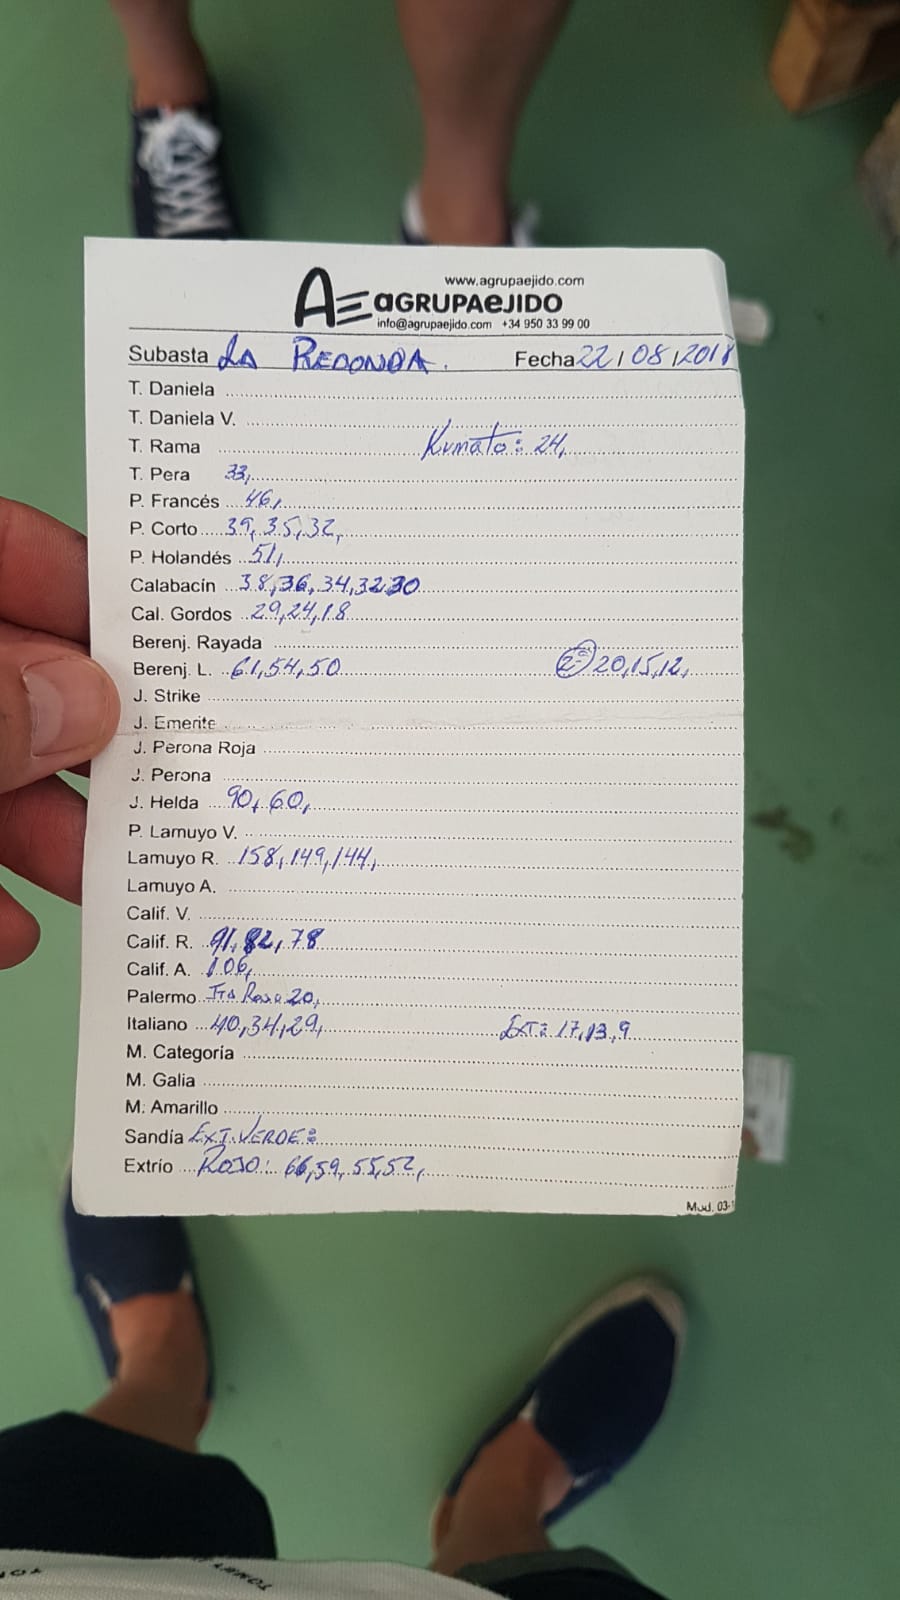 www.agrupaejido.com
AGRUPAEJIDO
info@agrupaejido.com +34 950 33 99 00
Subasta LA REDONDA. Fecha 22/08/2018
T. Daniela
T. Daniela V.
T. Rama Kumato: 24,
T. Pera 33,
P. Francés 46,
P. Corto 39, 35, 32,
P. Holandés 51,
Calabacín 38, 36, 34, 32 30
Cal. Gordos 29, 24, 18
Berenj. Rayada
Berenj. L. 61, 54, 50 2ª 20, 15, 12,
J. Strike
J. Emerite
J. Perona Roja
J. Perona
J. Helda 90, 60,
P. Lamuyo V.
Lamuyo R. 158, 149, 144,
Lamuyo A.
Calif. V.
Calif. R. 91, 82, 78
Calif. A. 106,
Palermo 20,
Italiano 40, 34, 29, EXT: 17, 13, 9
M. Categoría
M. Galia
M. Amarillo
Sandía EXT. VERDE:
Extrío ROJO: 66, 59, 55, 52,
Mod. 03-